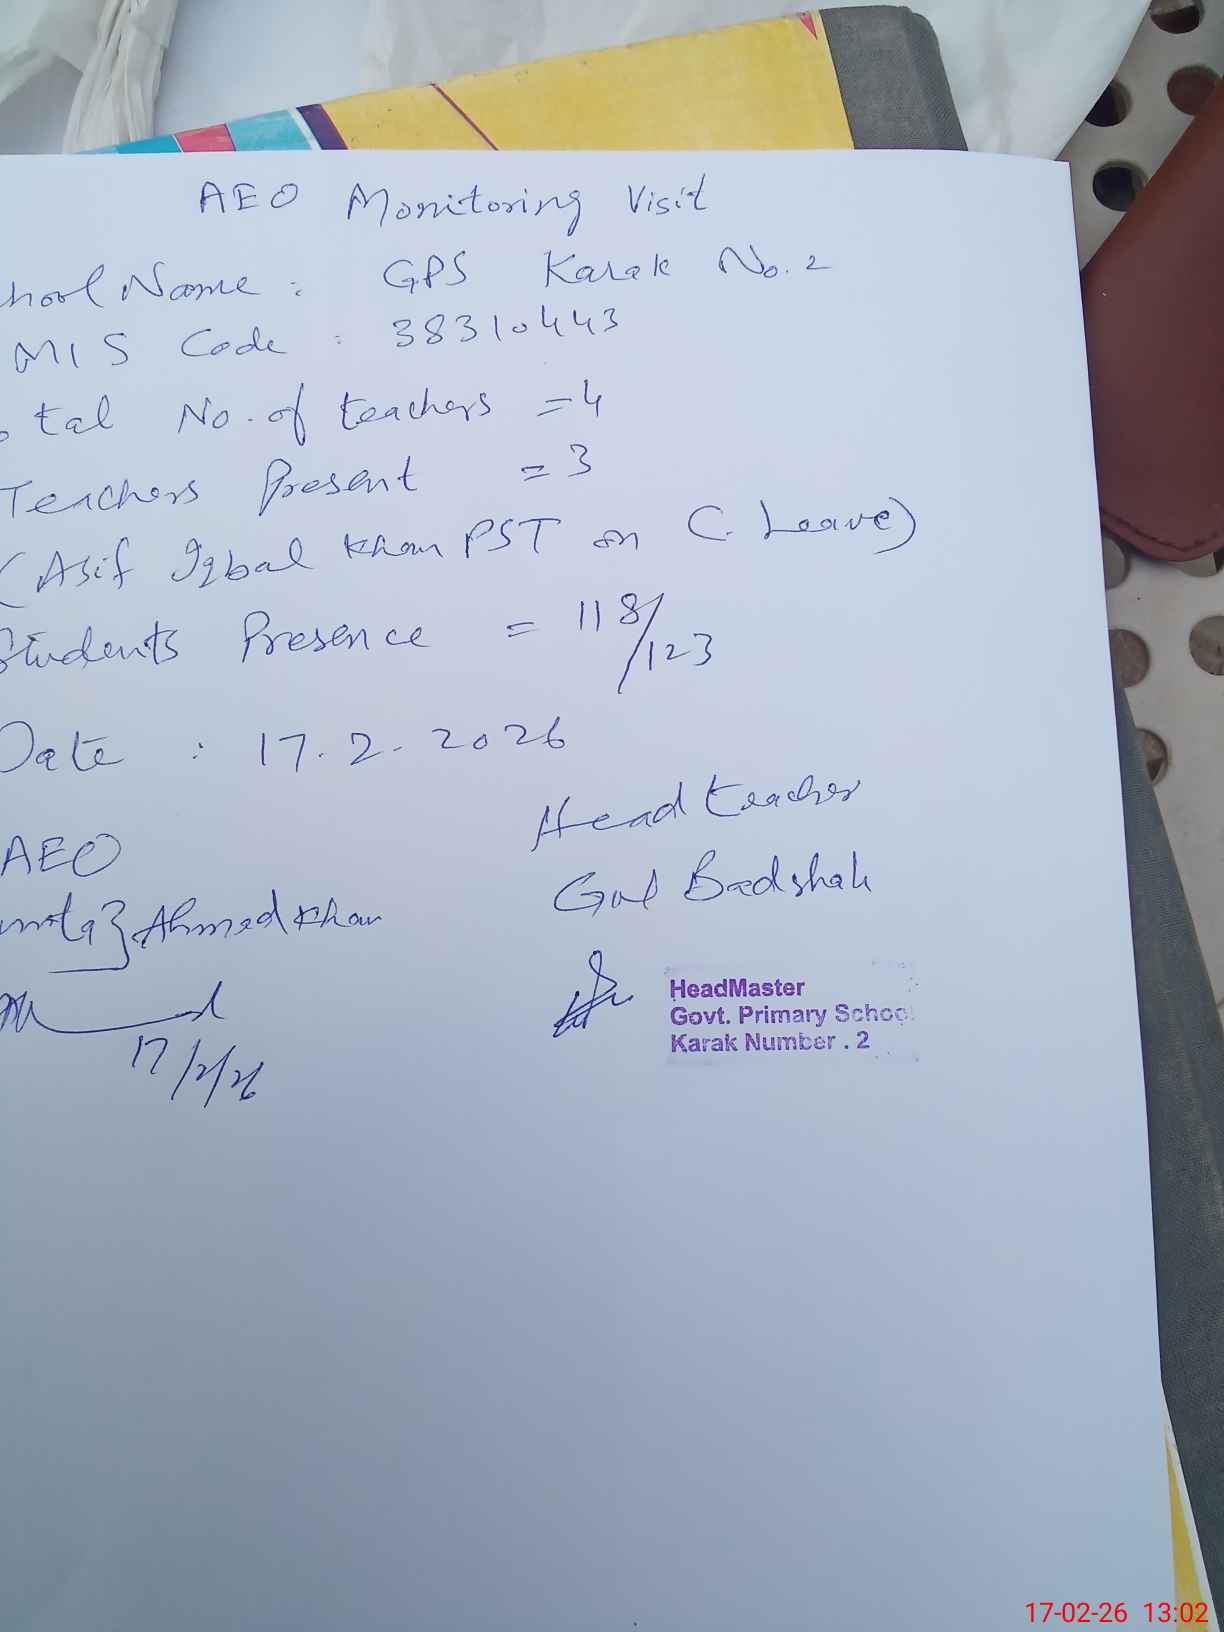 AEO Monitoring Visit
chool Name : GPS Karak No. 2
MIS Code : 38310443
otal No. of teachers = 4
Teachers Present = 3
(Asif Iqbal Khan PST on C. Leave)
Students Presence = 118/123
Date : 17.2.2026
AEO
Head teacher
mtaz Ahmed Khan
Gul Badshah
17/2/26
HeadMaster
Govt. Primary School
Karak Number . 2
17-02-26 13:02